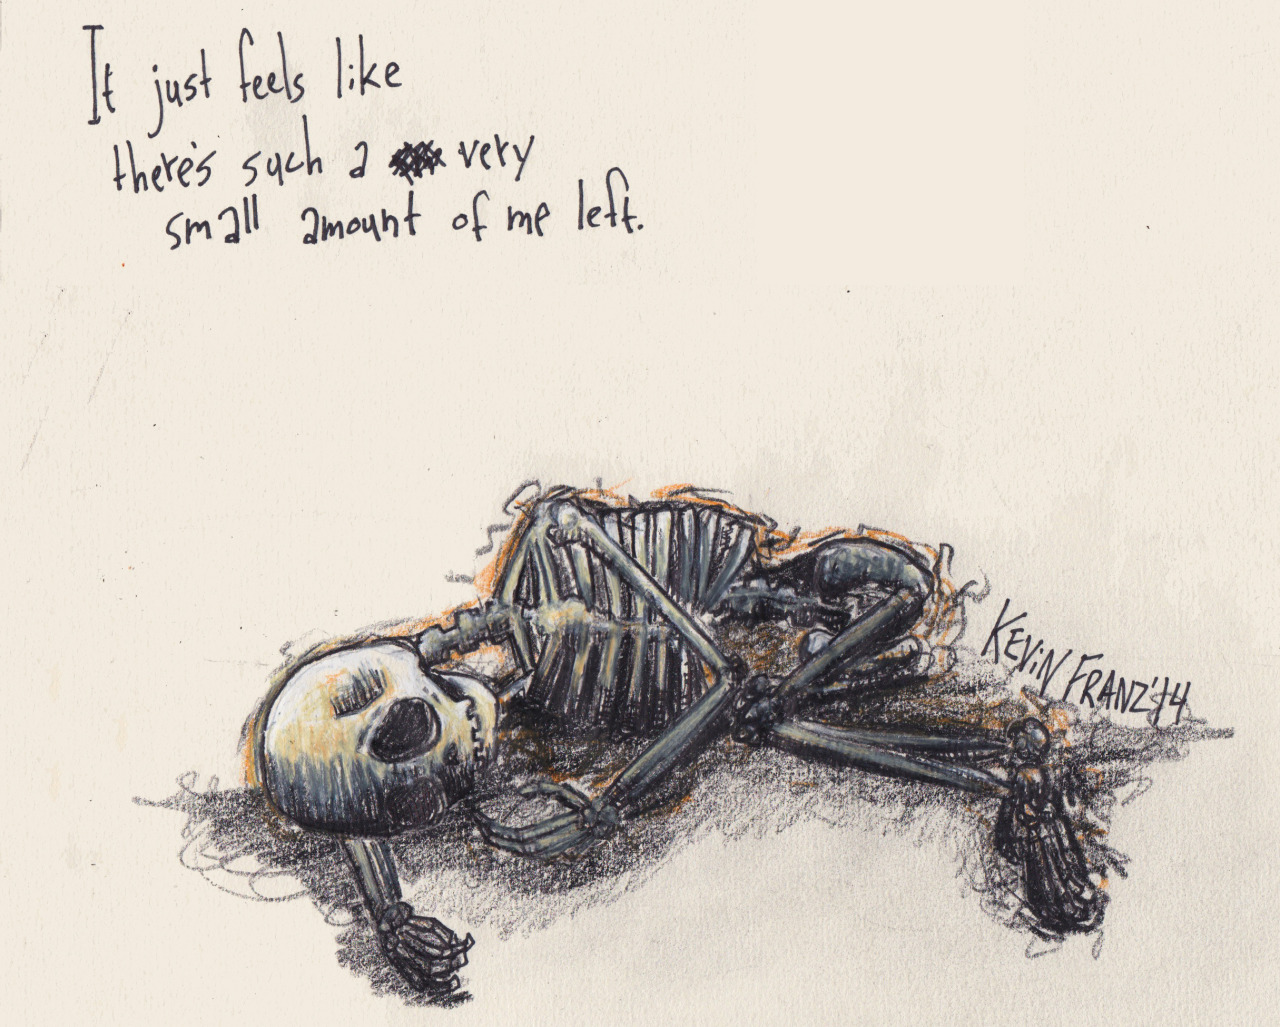 It just feels like
there's such a very
small amount of me left.
KEViN FRANZ '14